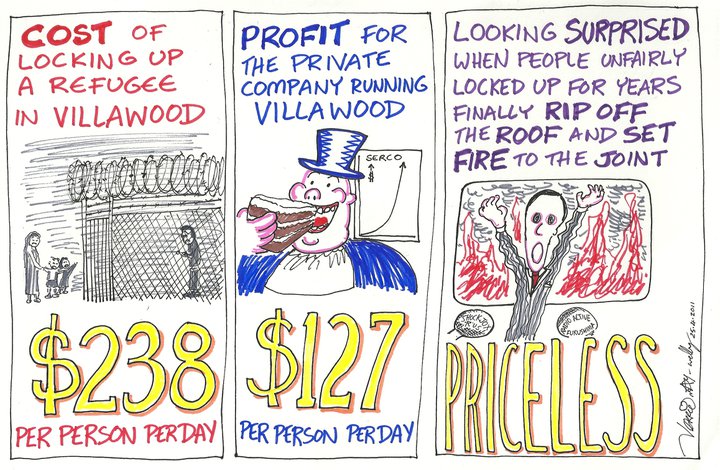 COST OF
LOCKING UP
A REFUGEE
IN VILLAWOOD
$238
PER PERSON PER DAY
PROFIT FOR
THE PRIVATE
COMPANY RUNNING
VILLAWOOD
SERCO
$
$127
PER PERSON PER DAY
LOOKING SURPRISED
WHEN PEOPLE UNFAIRLY
LOCKED UP FOR YEARS
FINALLY RIP OFF
THE ROOF AND SET
FIRE TO THE JOINT
SHOCK JOCKS
R US
FUKUSHIMA
PRICELESS
25.4.2011